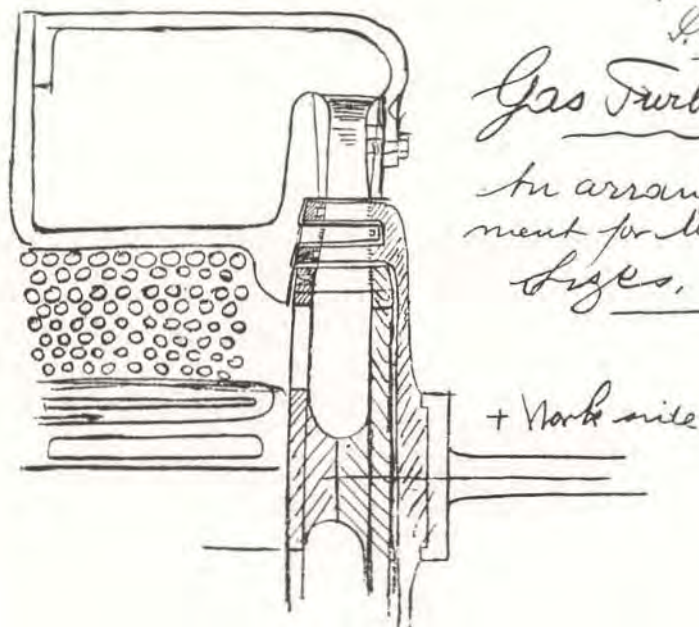 Gas Turb
An arran
ment for
Sizes.
+ Work side